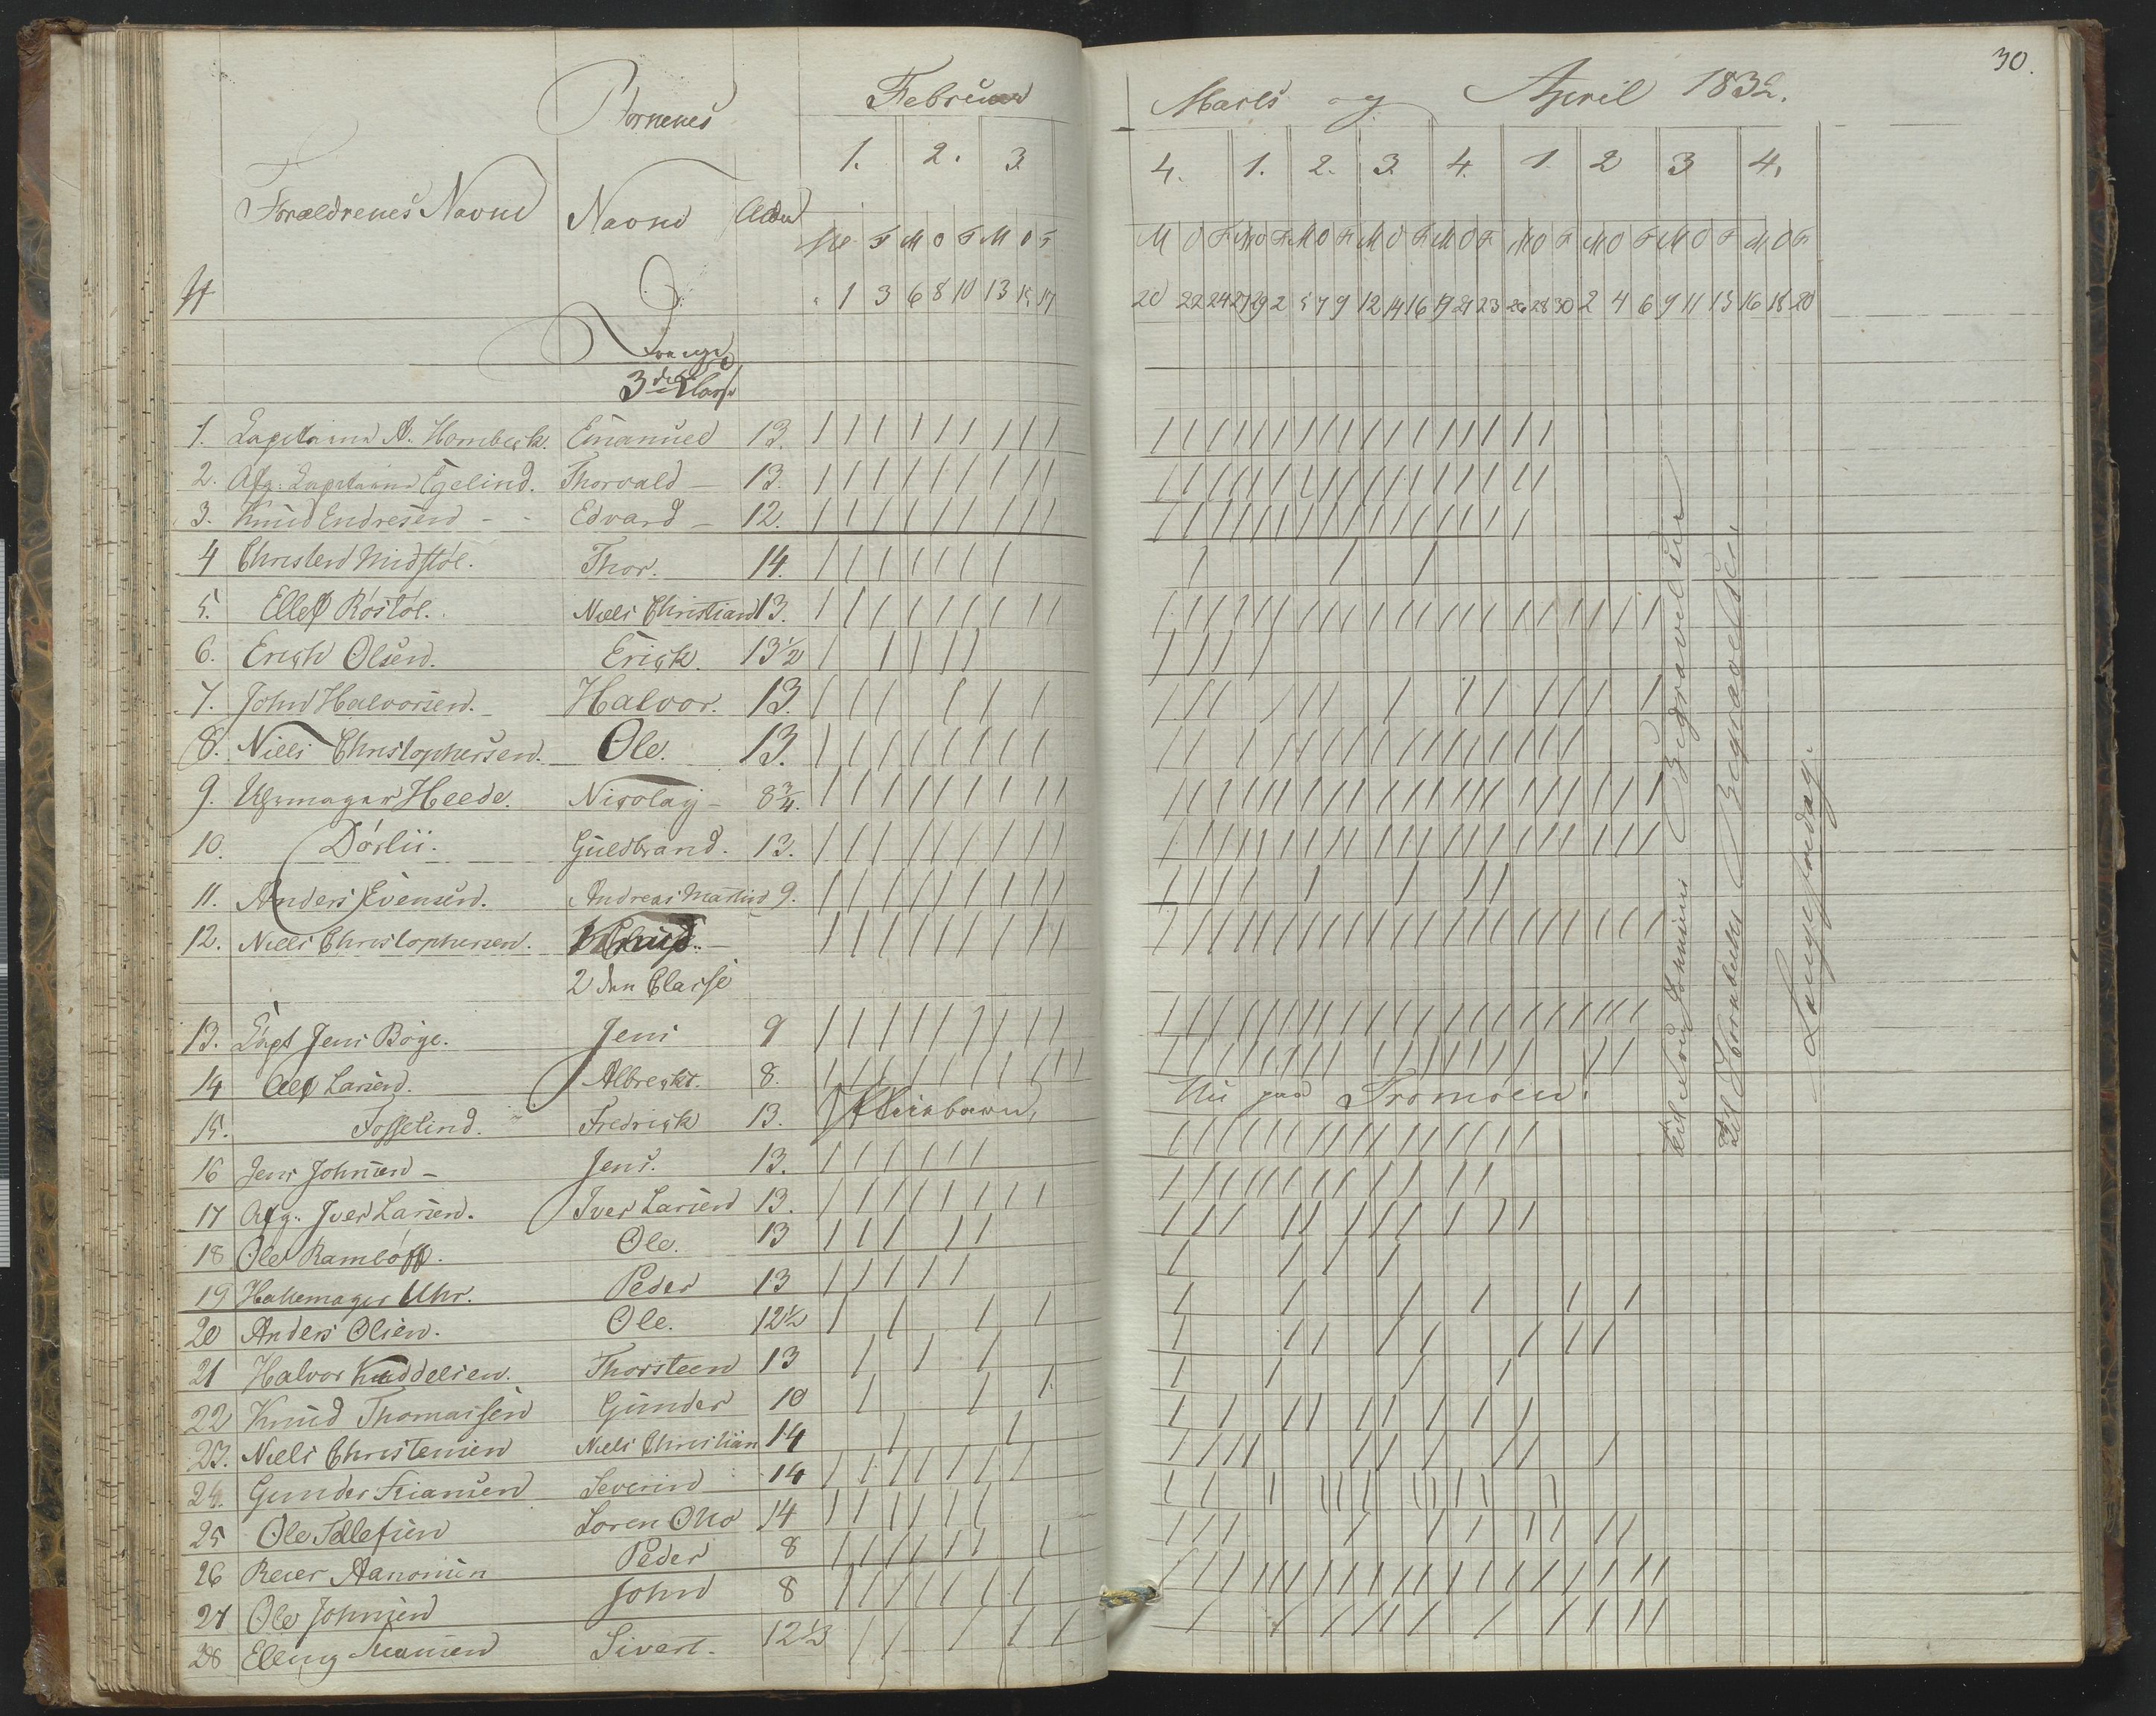 30.
Februar Marts og April 1832.
Børnenes
1. 2. 3 4. 1. 2. 3. 4. 1. 2 3 4.
Forældrenes Navne Navne Alder
M F M O F M O F M O F M O F M O F M O F M O F M O F M O F M O F M O F
N 1 3 6 8 10 13 15 17 20 22 24 27 29 2 5 7 9 12 14 16 19 21 23 26 28 30 2 4 6 9 11 13 16 18 20
Drenge
3die Classe
1. Capitaine A. Hornbeck. Emanuel 13.
2. Afg. Capitaine Egelind. Thorvald 13.
3. Knud Endresen - - Edvard - 12.
4 Christen Midstøl. Thor. 14.
5. Ellef Røstøl. Niels Christian 13.
6. Erich Olsen. Erick. 13½
7. John Halvorsen. Halvor. 13.
8. Niels Christophersen. Ole. 13.
9. Uhrmager Heede. Nicolay - 8¾.
10. Dørlii. Guldbrand. 13.
11. Anders Evensen. Andreas Martin 9.
12. Niels Christophersen. Knud. -
2den Classe
13. Capt Jens Bøge. Jens 9
14 Alf Larsen. Albreckt. 8.
15. Fosselind. Fredrick 13. Nu paa Tromøen.
16 Jens Johnsen - Jens. 13.
17 Afg. Iver Larsen. Iver Larsen 13.
18 Ole Ramløff. Ole. 13
19 Hattemager Uhr. Peder 13
20 Anders Olsen. Ole. 12½
21 Halvor Knuddelsen. Thorsteen 13
22 Knud Thomassen Gunder 10
23. Niels Christensen Niels Christian 14
24. Gunder Severin 14
25 Ole Tellefsen Søren Otto 14
26 Reier Aanonsen Peder 8
27 Ole Johnsen John 8
28 Elling Sivert. 12½
Begravelse
Til Hornbecks Begravelse
Langefredag.